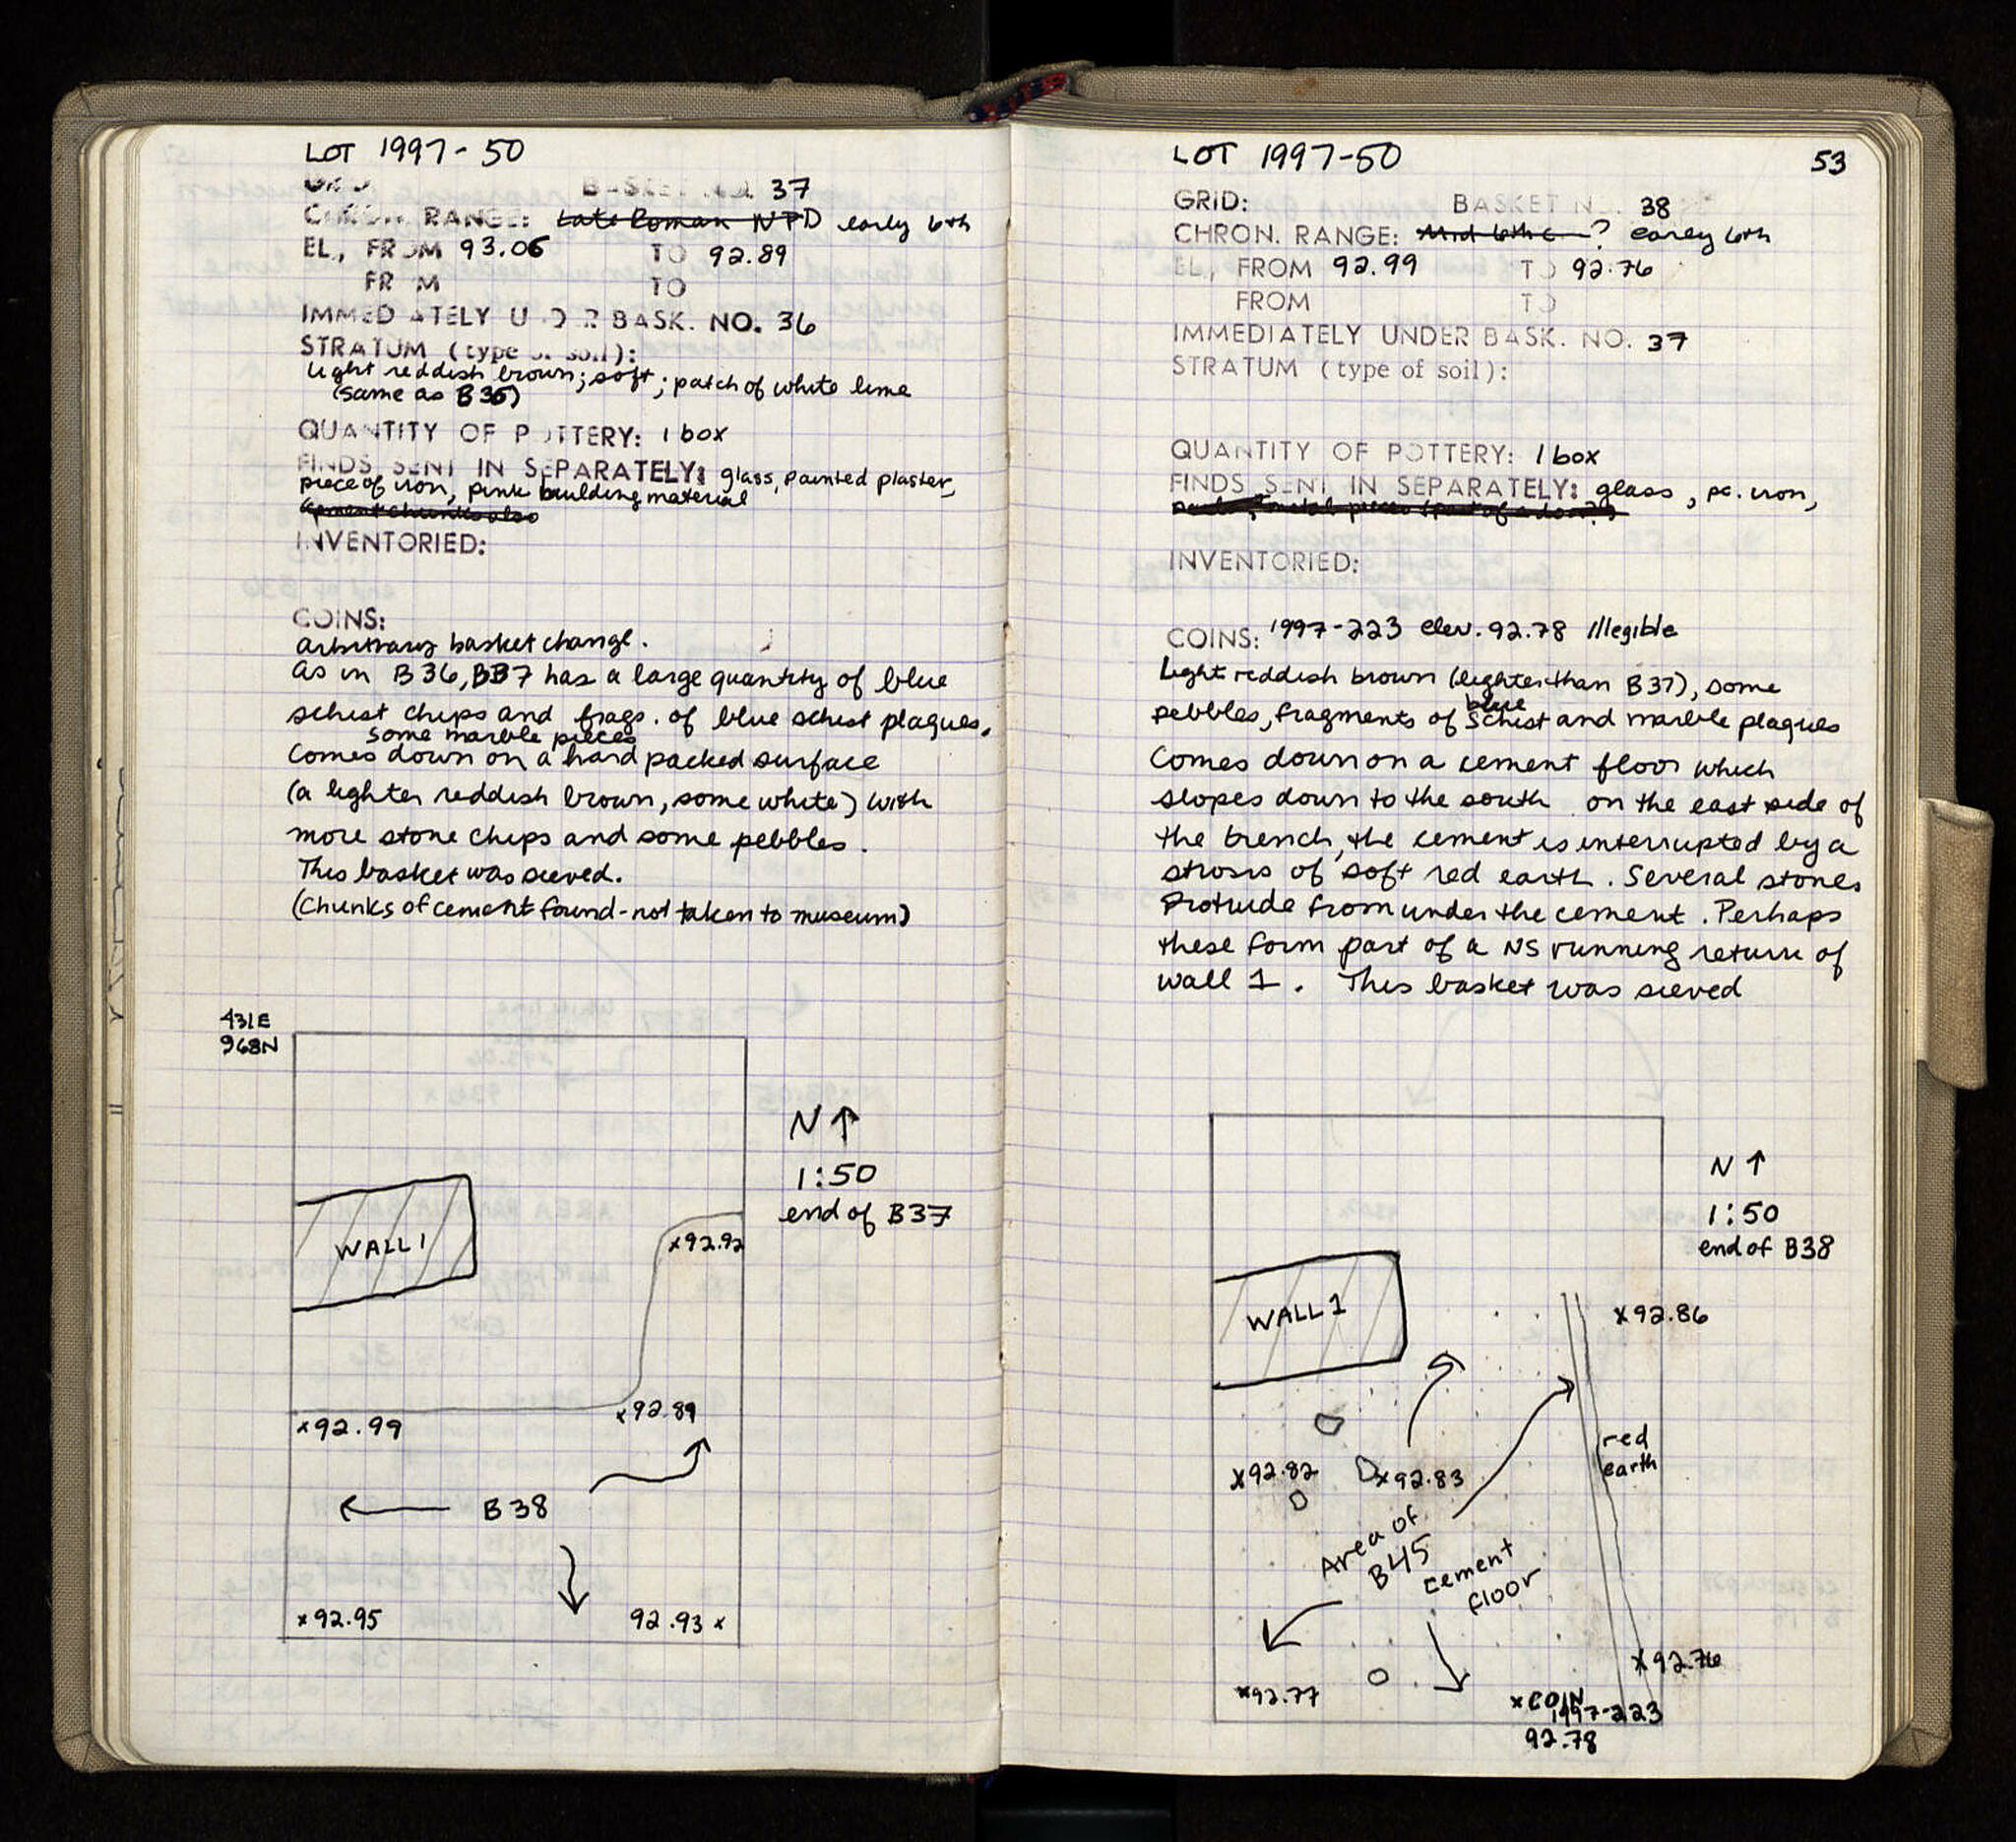 LOT 1997-50
BASKET NO. 37
CHRON. RANGE: Late Roman NPD early 6th
EL., FROM 93.06 TO 92.89
FROM TO
IMMEDIATELY UNDER BASK. NO. 36
STRATUM (type of soil):
light reddish brown; soft; patch of white lime
(same as B36)
QUANTITY OF POTTERY: 1 box
FINDS SENT IN SEPARATELY: glass, painted plaster,
piece of iron, pink building material
cement chunks also
INVENTORIED:
COINS:
arbitrary basket change.
As in B36, B37 has a large quantity of blue
schist chips and frags. of blue schist plaques.
some marble pieces
Comes down on a hard packed surface
(a lighter reddish brown, some white) with
more stone chips and some pebbles.
This basket was sieved.
(Chunks of cement found - not taken to museum)
431E
968N
N ↑
1:50
end of B37
WALL 1
x92.92
x92.99
x92.89
← B38
x92.95
92.93 x
LOT 1997-50
53
GRID: BASKET NO. 38
CHRON. RANGE: Mid 6th c ? early 6th
EL., FROM 92.99 TO 92.76
FROM TO
IMMEDIATELY UNDER BASK. NO. 37
STRATUM (type of soil):
QUANTITY OF POTTERY: 1 box
FINDS SENT IN SEPARATELY: glass, pc. iron,
metal pieces (part of a door?)
INVENTORIED:
COINS: 1997-223 elev. 92.78 Illegible
Light reddish brown (lighter than B37), some
blue
pebbles, fragments of schist and marble plaques
Comes down on a cement floor which
slopes down to the south. on the east side of
the trench, the cement is interrupted by a
strosis of soft red earth. Several stones
Protrude from under the cement. Perhaps
these form part of a NS running return of
wall 1. This basket was sieved
N ↑
1:50
end of B38
WALL 1
x92.86
red
earth
x92.82
x92.83
Area of
B45
cement
floor
x92.76
x92.77
x COIN
1997-223
92.78